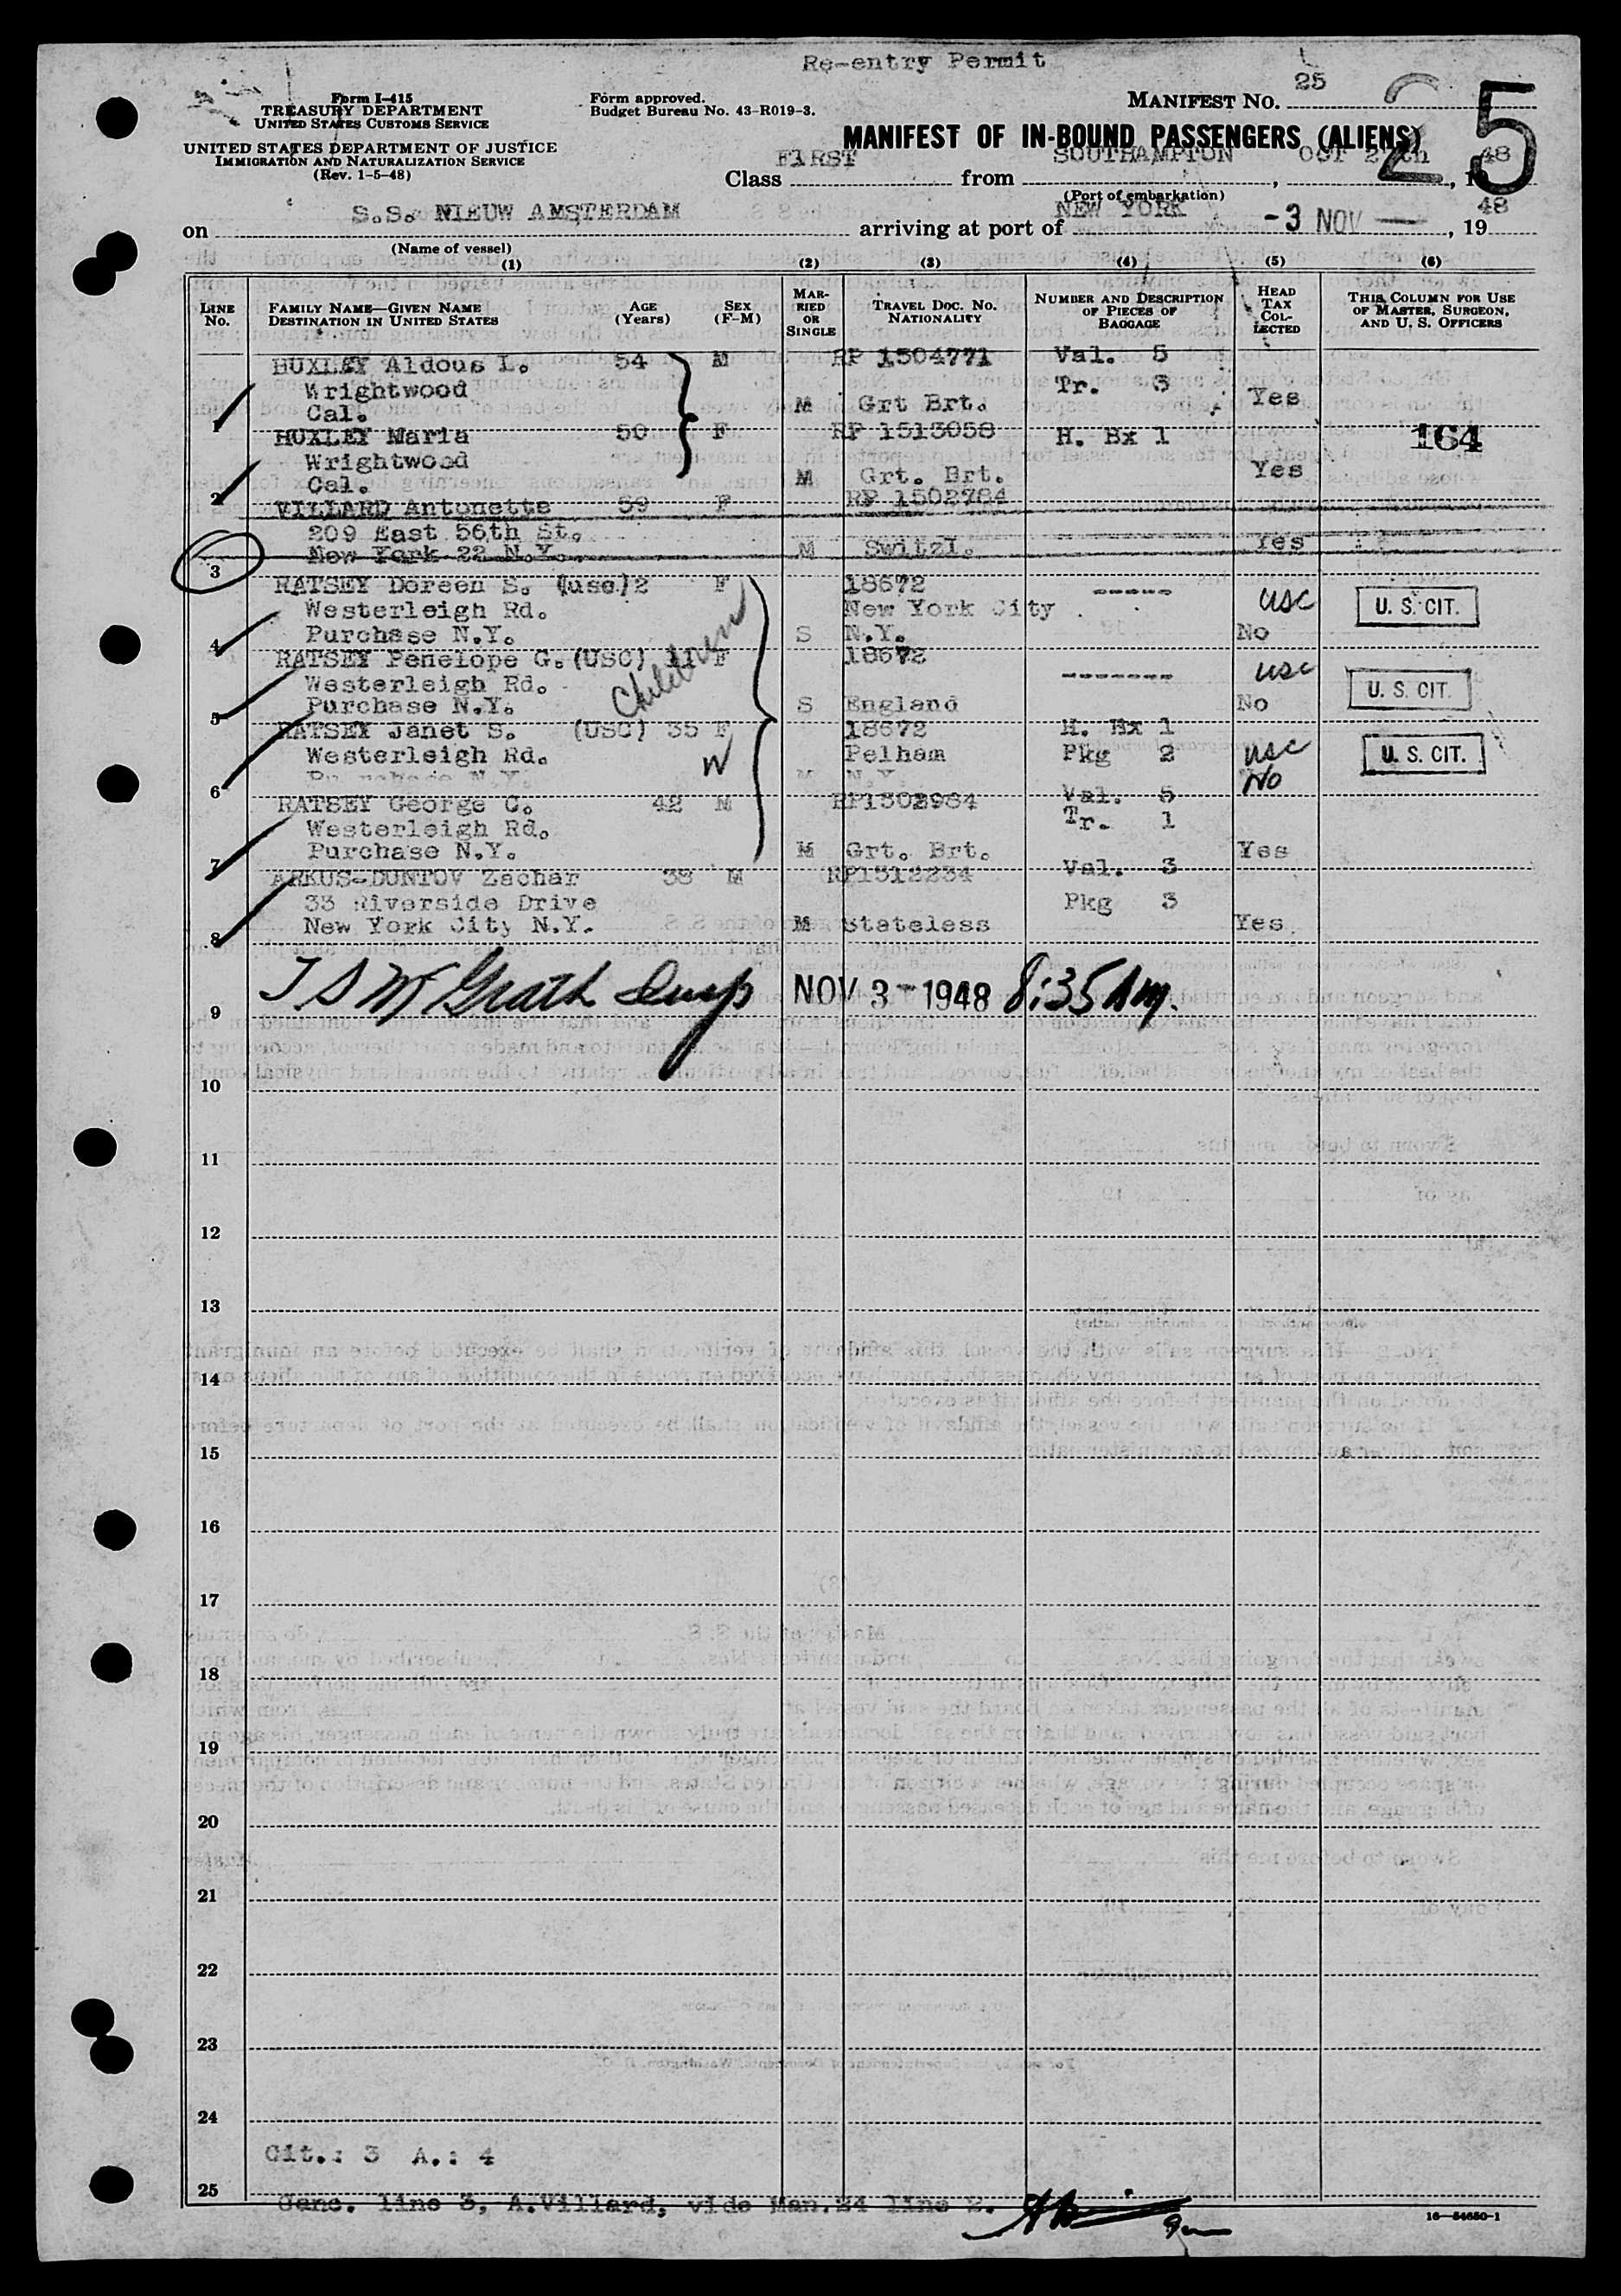 Re-entry Permit
Form I-415
TREASURY DEPARTMENT
UNITED STATES CUSTOMS SERVICE
UNITED STATES DEPARTMENT OF JUSTICE
IMMIGRATION AND NATURALIZATION SERVICE
(Rev. 1-5-48)
Form approved.
Budget Bureau No. 43-R019-3.
MANIFEST NO. 25
25
MANIFEST OF IN-BOUND PASSENGERS (ALIENS)
Class FIRST from SOUTHAMPTON, OCT 48
(Port of embarkation)
on S.S. NIEUW AMSTERDAM arriving at port of NEW YORK -3 NOV, 19 48
(Name of vessel)
(1) (2) (3) (4) (5) (6)
LINE NO. FAMILY NAME—GIVEN NAME DESTINATION IN UNITED STATES AGE (Years) SEX (F-M) MARRIED OR SINGLE TRAVEL DOC. NO. NATIONALITY NUMBER AND DESCRIPTION OF PIECES OF BAGGAGE HEAD TAX COLLECTED THIS COLUMN FOR USE OF MASTER, SURGEON, AND U. S. OFFICERS
HUXLEY Aldous L. 54 M RP 1504771 Val. 5
Wrightwood Tr. 3
1 Cal. M Grt Brt. Yes
HUXLEY Maria 50 F RP 1513058 H. Bx 1 164
Wrightwood
2 Cal. M Grt. Brt. Yes
VILLARD Antonette 59 F RP 1502784
209 East 56th St.
3 New York 22 N.Y. M Switzl. Yes
RATSEY Doreen S. (usc) 2 F 18672 ----- usc U. S. CIT.
Westerleigh Rd. New York City
4 Purchase N.Y. S N.Y. No
Children
RATSEY Penelope G. (USC) 11 F 18672 ------- usc U. S. CIT.
Westerleigh Rd.
5 Purchase N.Y. S England No
RATSEY Janet S. (USC) 35 F 18672 H. Bx 1
Westerleigh Rd. W Pelham Pkg 2 usc U. S. CIT.
6 Purchase N.Y. M N.Y. No
RATSEY George C. 42 M RP1302984 Val. 5
Westerleigh Rd. Tr. 1
7 Purchase N.Y. M Grt. Brt. Yes
ARKUS-DUNTOV Zachar 38 M RP1312234 Val. 3
33 Riverside Drive Pkg 3
8 New York City N.Y. M Stateless Yes
9 T S McGrath Insp NOV 3-1948 8:35 AM.
10
11
12
13
14
15
16
17
18
19
20
21
22
23
24
Cit.: 3 A.: 4
25
Canc. line 3, A.Villard, vide Man.24 line 2.
16—54650-1